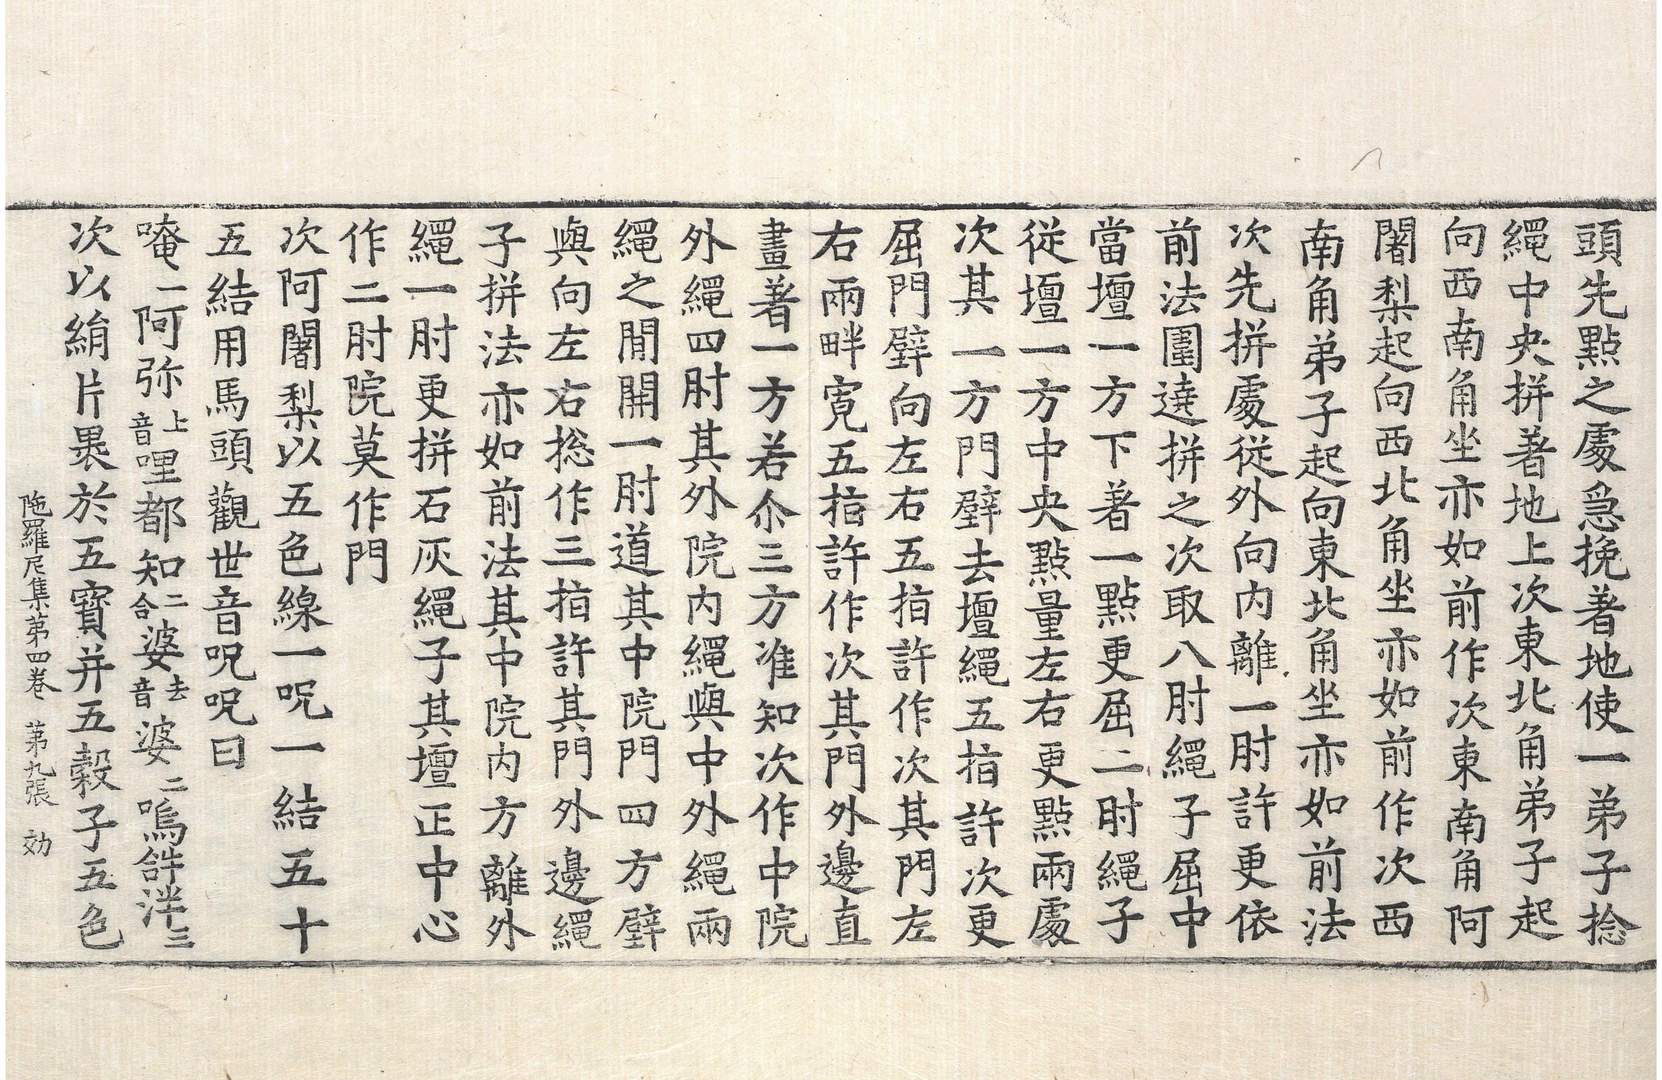 頭先點之處急挽著地使一弟子捻
繩中央拼著地上次東北角弟子起
向西南角坐亦如前作次東南角阿
闍梨起向西北角坐亦如前作次西
南角弟子起向東北角坐亦如前法
次先拼處從外向内離一肘許更依
前法圍遶拼之次取八肘繩子屈中
當壇一方下著一點更屈二肘繩子
從壇一方中央點量左右更點兩處
次其一方門壁去壇繩五指許次更
屈門壁向左右五指許作次其門左
右兩畔寬五指許作次其門外邊直
畫著一方若尒三方准知次作中院
外繩四肘其外院内繩與中外繩兩
繩之間開一肘道其中院門四方壁
與向左右捴作三指許其門外邊繩
子拼法亦如前法其中院内方離外
繩一肘更拼石灰繩子其壇正中心
作二肘院莫作門
次阿闍梨以五色線一呪一結五十
五結用馬頭觀世音呪呪曰
唵一阿弥上音哩都知二合婆去音婆二嗚𤙖泮三
次以絹片褁於五寶并五穀子五色
陁羅尼集第四卷 第九張 効